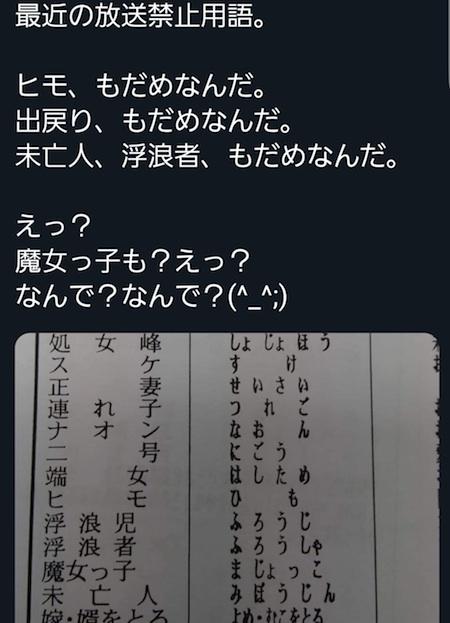 最近の放送禁止用語。
ヒモ、もだめなんだ。
出戻り、もだめなんだ。
未亡人、浮浪者、もだめなんだ。
えっ？
魔女っ子も？えっ？
なんで？なんで？(^_^;)
処女峰 しょじょほう
スケ すけ
正妻 せいさい
連れ子 つれご
ナオン なおん
二号 にごう
端女 はしため
ヒモ ひも
浮浪児 ふろうじ
浮浪者 ふろうしゃ
魔女っ子 まじょっこ
未亡人 みぼうじん
嫁・婿をとる よめ・むこをとる